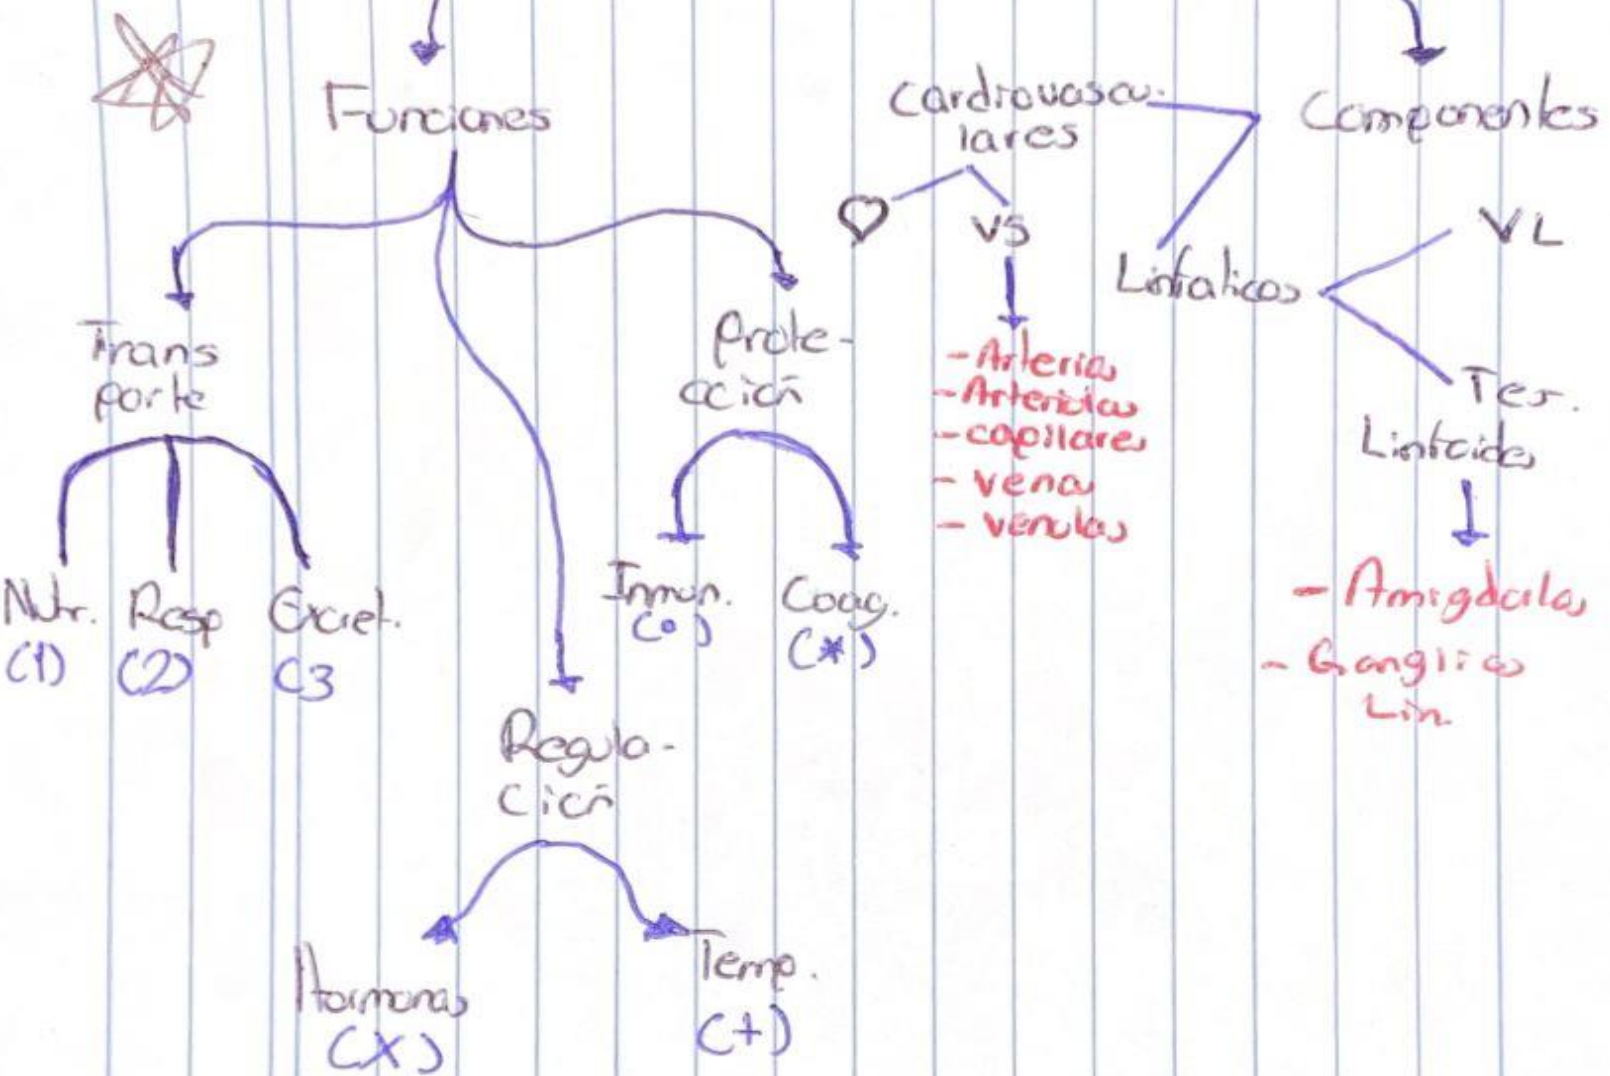 Funciones
Trans
porte
Nutr.
(1)
Resp
(2)
Excret.
(3
Regula-
ción
Hormonas
(X)
Temp.
(+)
Prote-
cción
Inmun.
(°)
Coag.
(*)
Componentes
Cardiovascu-
lares
VS
- Arterias
- Arteriolas
- capilares
- venas
- vénulas
Linfaticos
VL
Tej.
Linfoides
- Amigdalas
- Ganglios
Lin.